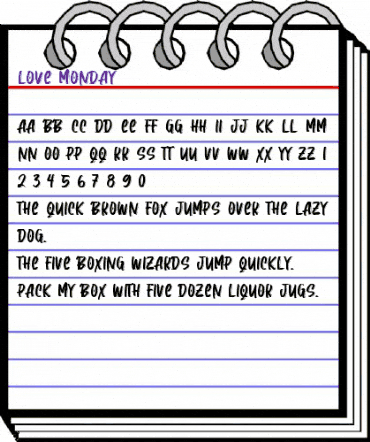 LOVE MONDAY
AA BB CC DD EE FF GG HH II JJ KK LL MM
NN OO PP QQ RR SS TT UU VV WW XX YY ZZ 1
2 3 4 5 6 7 8 9 0
THE QUICK BROWN FOX JUMPS OVER THE LAZY
DOG.
THE FIVE BOXING WIZARDS JUMP QUICKLY.
PACK MY BOX WITH FIVE DOZEN LIQUOR JUGS.